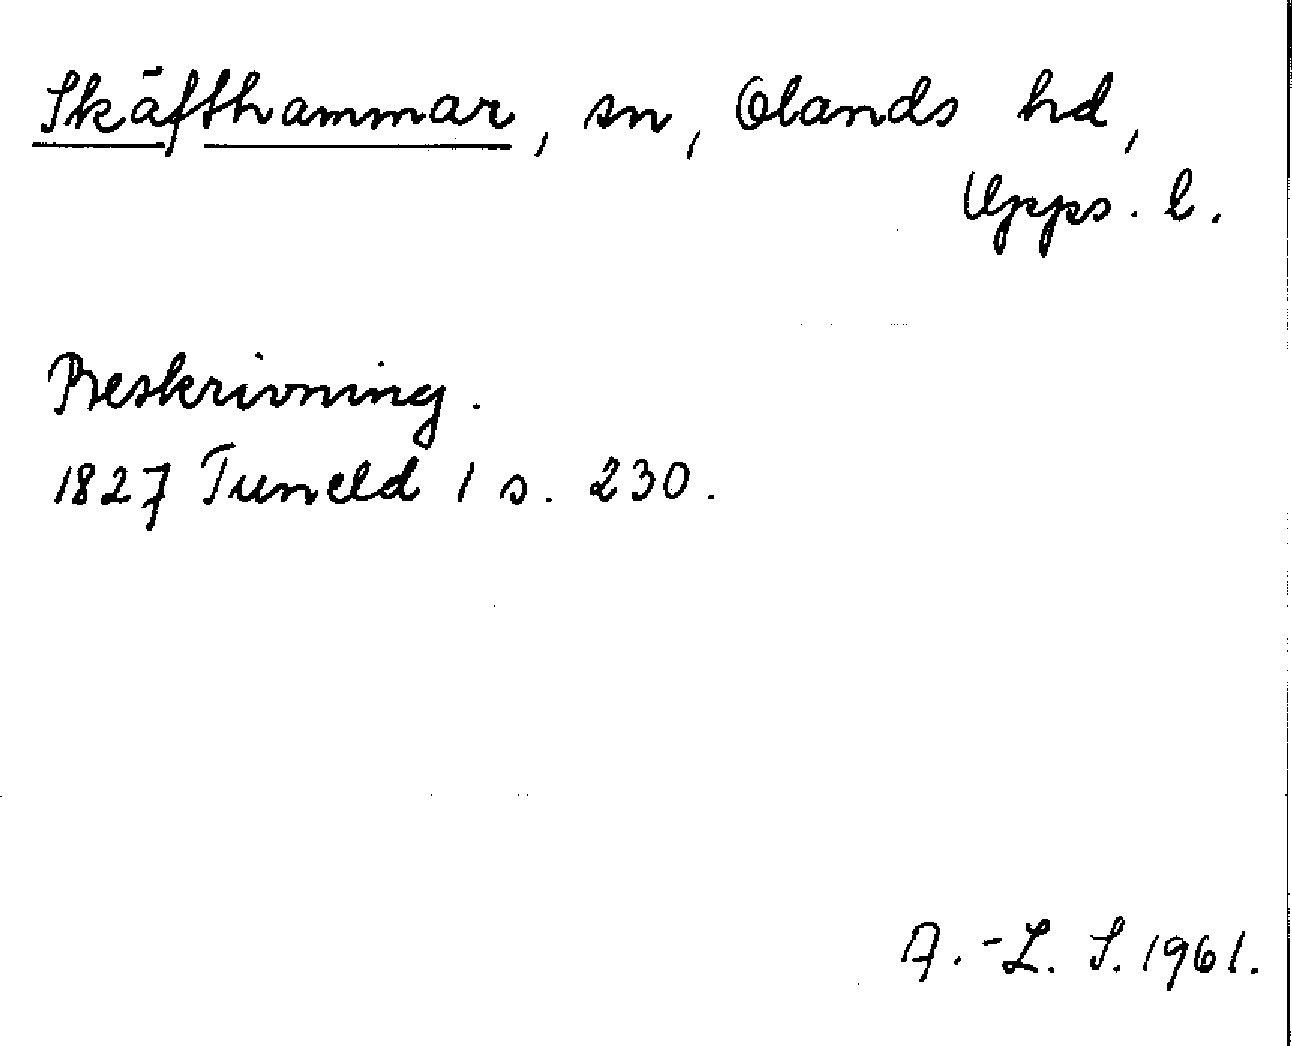 Skäfthammar, sn, Olands hd,
Upps. l.
Beskrivning.
1827 Tuneld 1 s. 230.
A.-L. S. 1961.